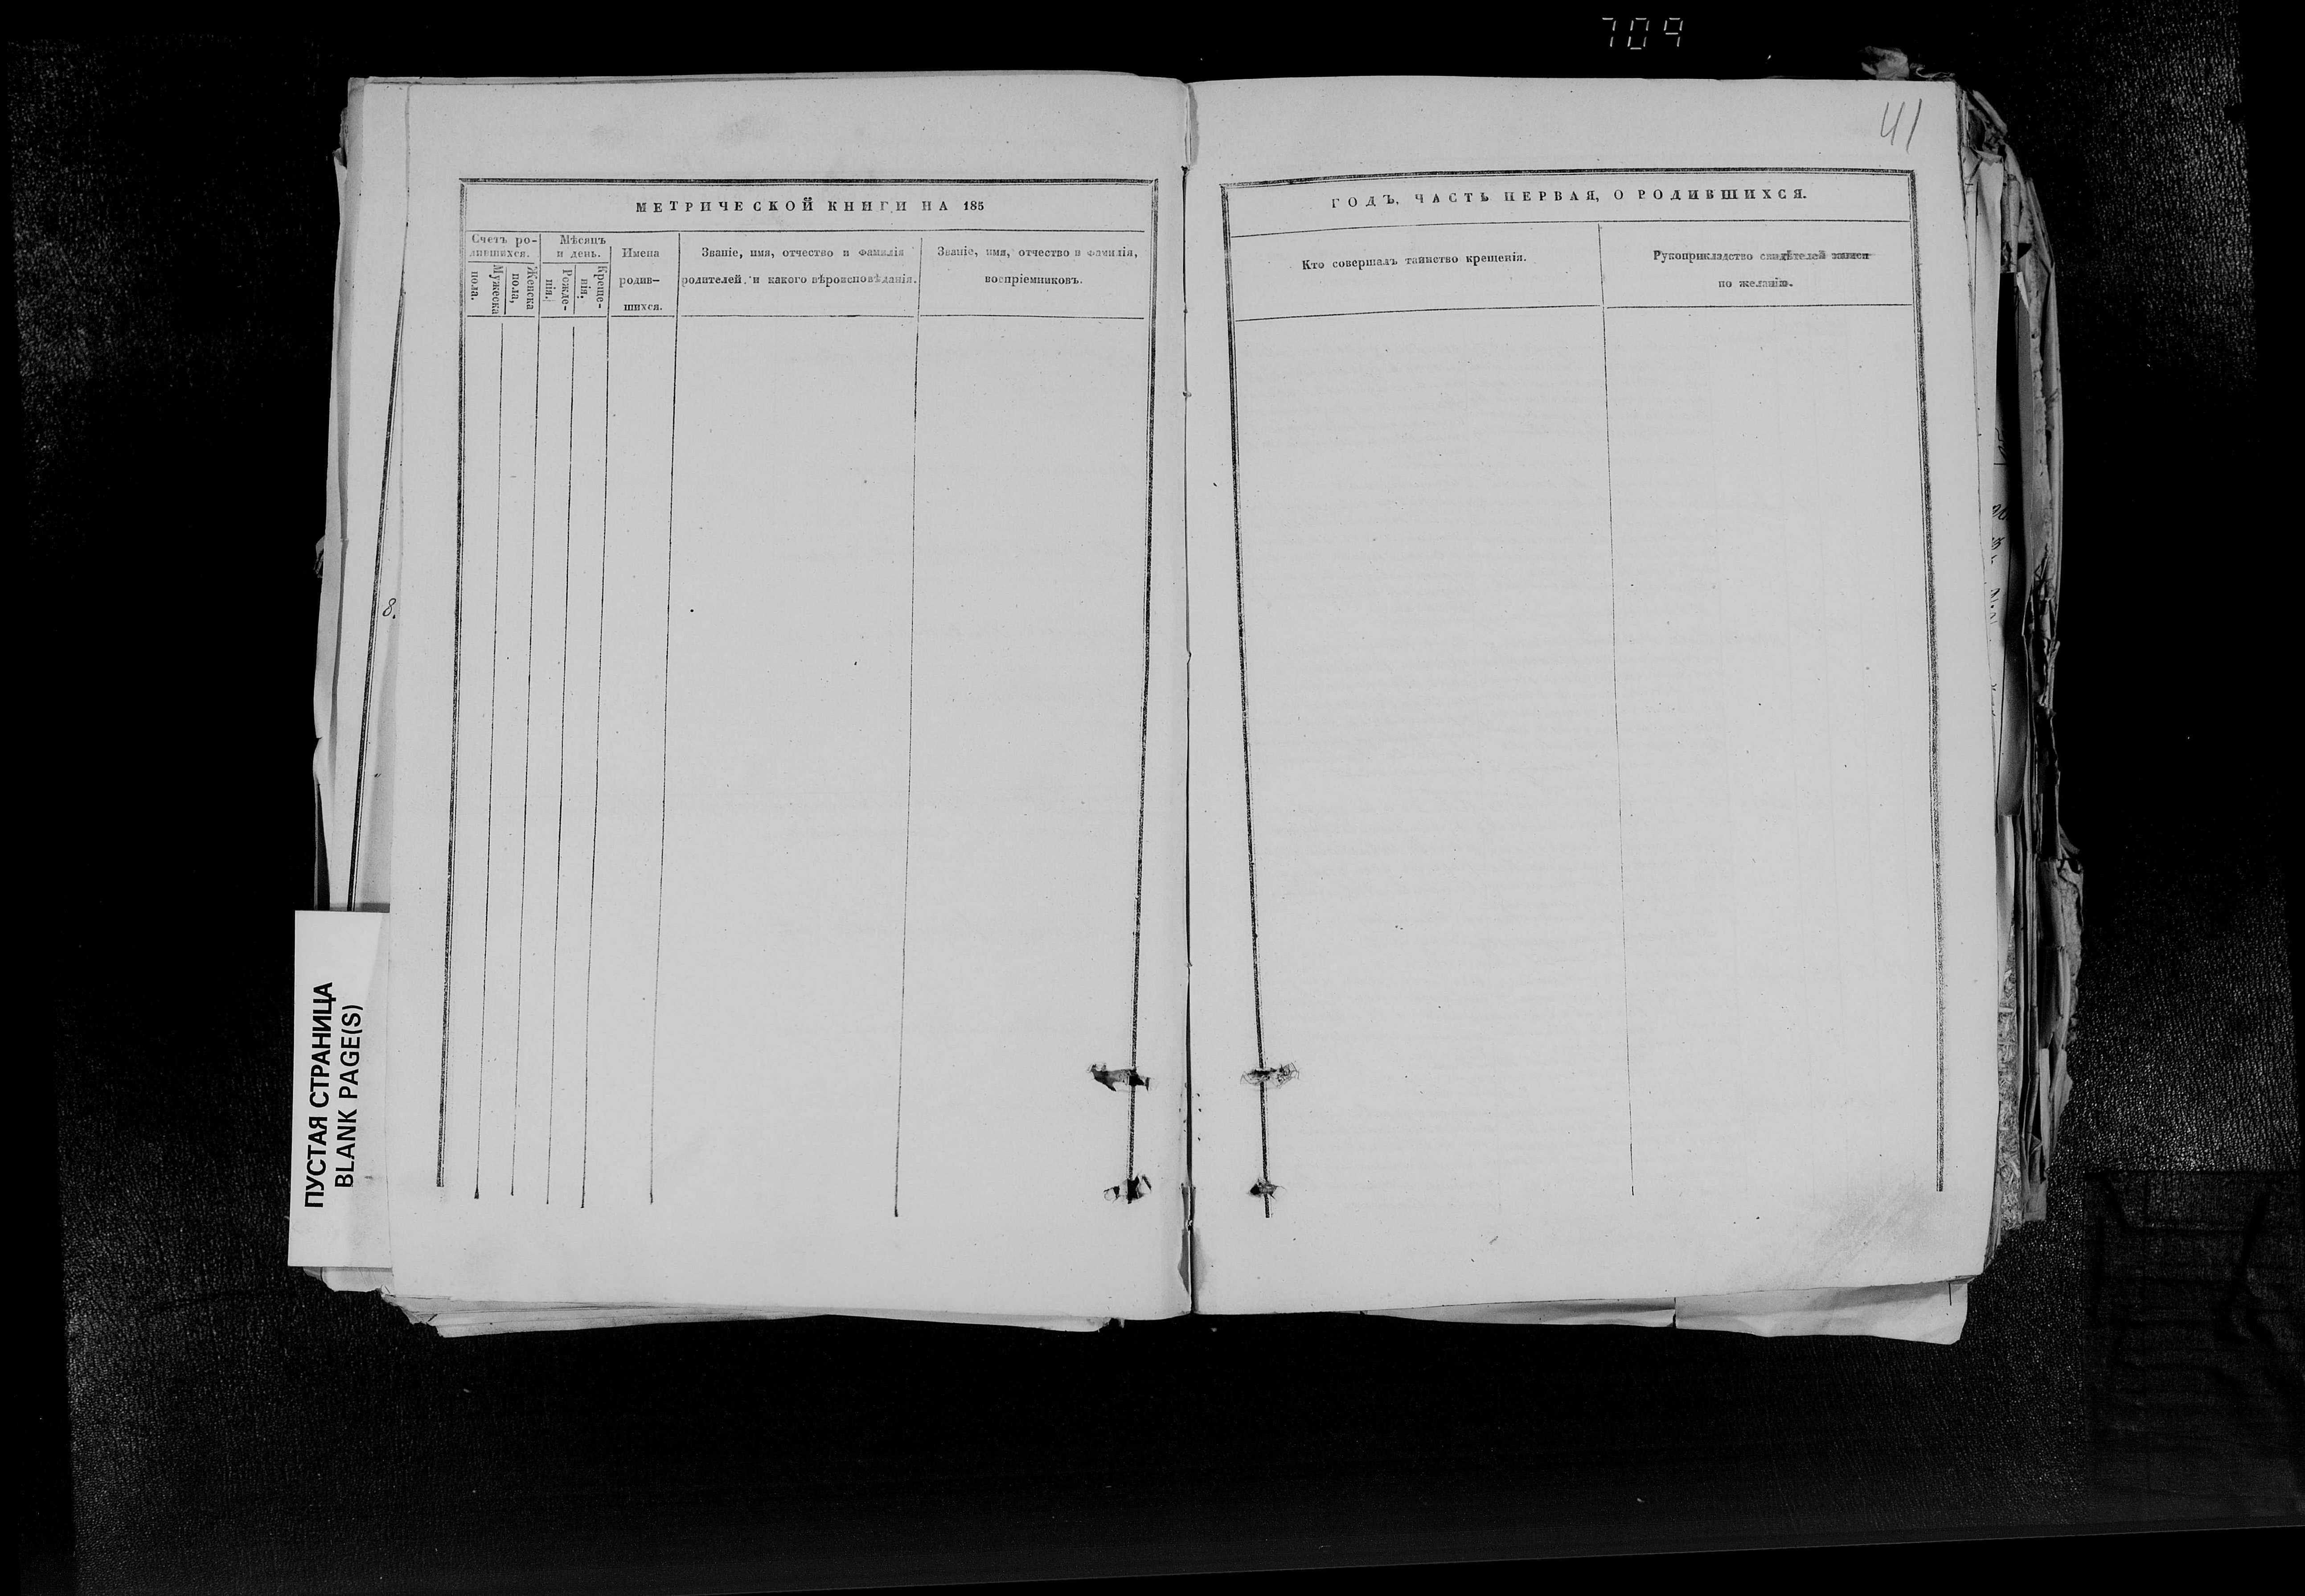 709
41
МЕТРИЧЕСКОЙ КНИГИ НА 185
Счетъ ро-
дившихся.
Мужеска
пола.
Женска
пола,
Мѣсяцъ
и день.
Рожде-
нія.
Креще-
нія.
Имена
родив-
шихся.
Званіе, имя, отчество и фамилія
родителей, и какого вѣроисповѣданія.
Званіе, имя, отчество и фамилія,
воспріемниковъ.
ГОДЪ, ЧАСТЬ ПЕРВАЯ, О РОДИВШИХСЯ.
Кто совершалъ таинство крещенія.
Рукоприкладство свидѣтелей записи
по желанію.
8.
ПУСТАЯ СТРАНИЦА
BLANK PAGE(S)